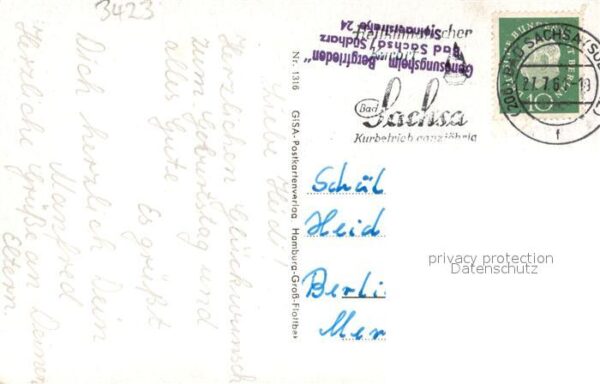 3423
Liebe Heidi!
Herzlichen Glückwunsch
zum Geburtstag und
alles Gute
Es grüßt
Dich herzlich Dein
Manfred
Herzliche Grüße an Deinen
Eltern
Nr. 1316 GISA-Postkartenverlag Hamburg-Groß-Flottbek
Genesungsheim „Bergfrieden“
Bad Sachsa / Südharz
Steinaerstraße 24
Heilklimatischer
Kurort
Bad
Sachsa
Kurbetrieb ganzjährig
DEUTSCHE BUNDESPOST BERLIN
10
BAD SACHSA (SÜDHARZ)
f
Schäl
Heid
Berli
Mer
privacy protection
Datenschutz